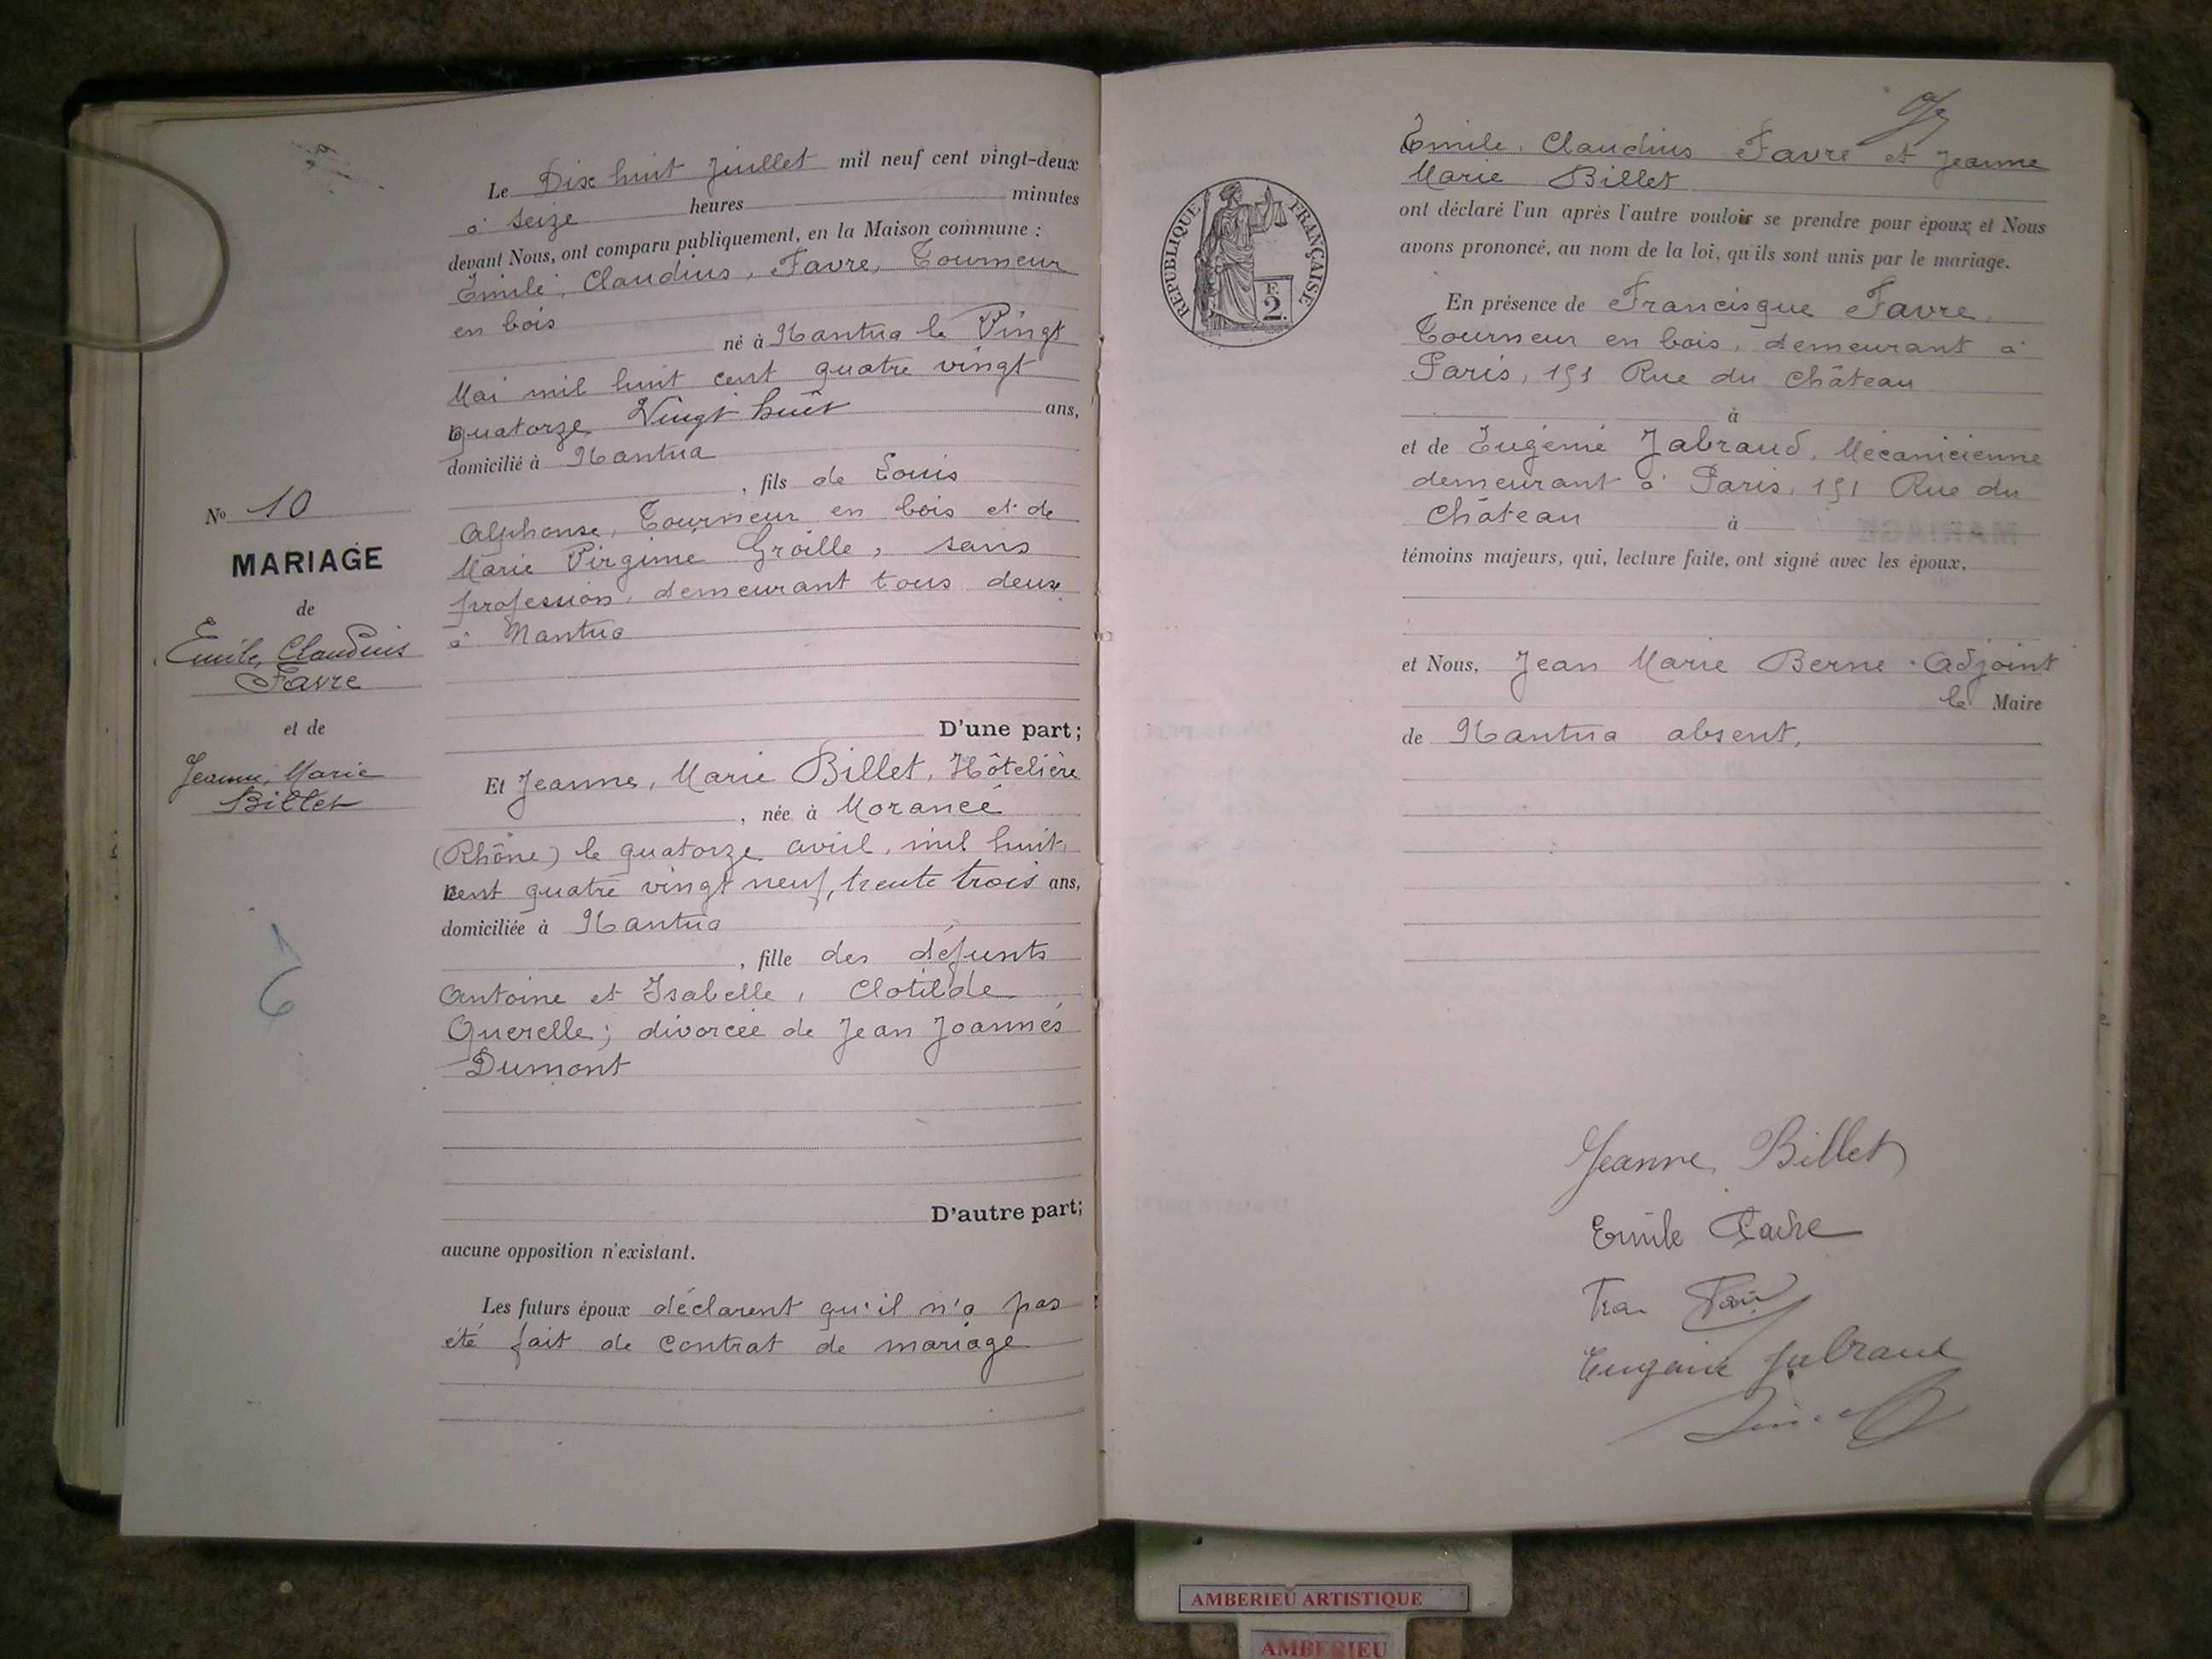 Le Dix huit Juillet mil neuf cent vingt-deux
à seize heures minutes
devant Nous, ont comparu publiquement, en la Maison commune :
Emile, Claudius, Favre, Tourneur
en bois
né à Nantua le Vingt
Mai mil huit cent quatre vingt
quatorze, Vingt huit ans,
domicilié à Nantua
, fils de Louis
Alphonse, Tourneur en bois et de
Marie Virginie Groille, sans
profession, demeurant tous deux
à Nantua
D'une part;
Et Jeanne, Marie Billet, Hôtelière
, née à Morancé
(Rhône) le quatorze avril, mil huit
cent quatre vingt neuf, trente trois ans,
domiciliée à Nantua
, fille des défunts
Antoine et Isabelle, Clotilde
Querelle; divorcée de Jean Joannès
Dumont
D'autre part;
aucune opposition n'existant.
Les futurs époux déclarent qu'il n'a pas
été fait de contrat de mariage
No 10
MARIAGE
de
Emile, Claudius
Favre
et de
Jeanne, Marie
Billet
6
Emile, Claudius Favre et Jeanne
Marie Billet
ont déclaré l'un après l'autre vouloir se prendre pour époux et Nous
avons prononcé, au nom de la loi, qu'ils sont unis par le mariage.
En présence de Francisque Favre,
Tourneur en bois, demeurant à
Paris, 151 Rue du Château
à
et de Eugénie Jabraud, Mécanicienne
demeurant à Paris, 151 Rue du
Château à
témoins majeurs, qui, lecture faite, ont signé avec les époux,
et Nous, Jean Marie Berne Adjoint
le Maire
de Nantua absent,
REPUBLIQUE FRANÇAISE
F.
2.
Jeanne Billet
Emile Favre
Eugénie Jabraud
AMBERIEU ARTISTIQUE
AMBERIEU